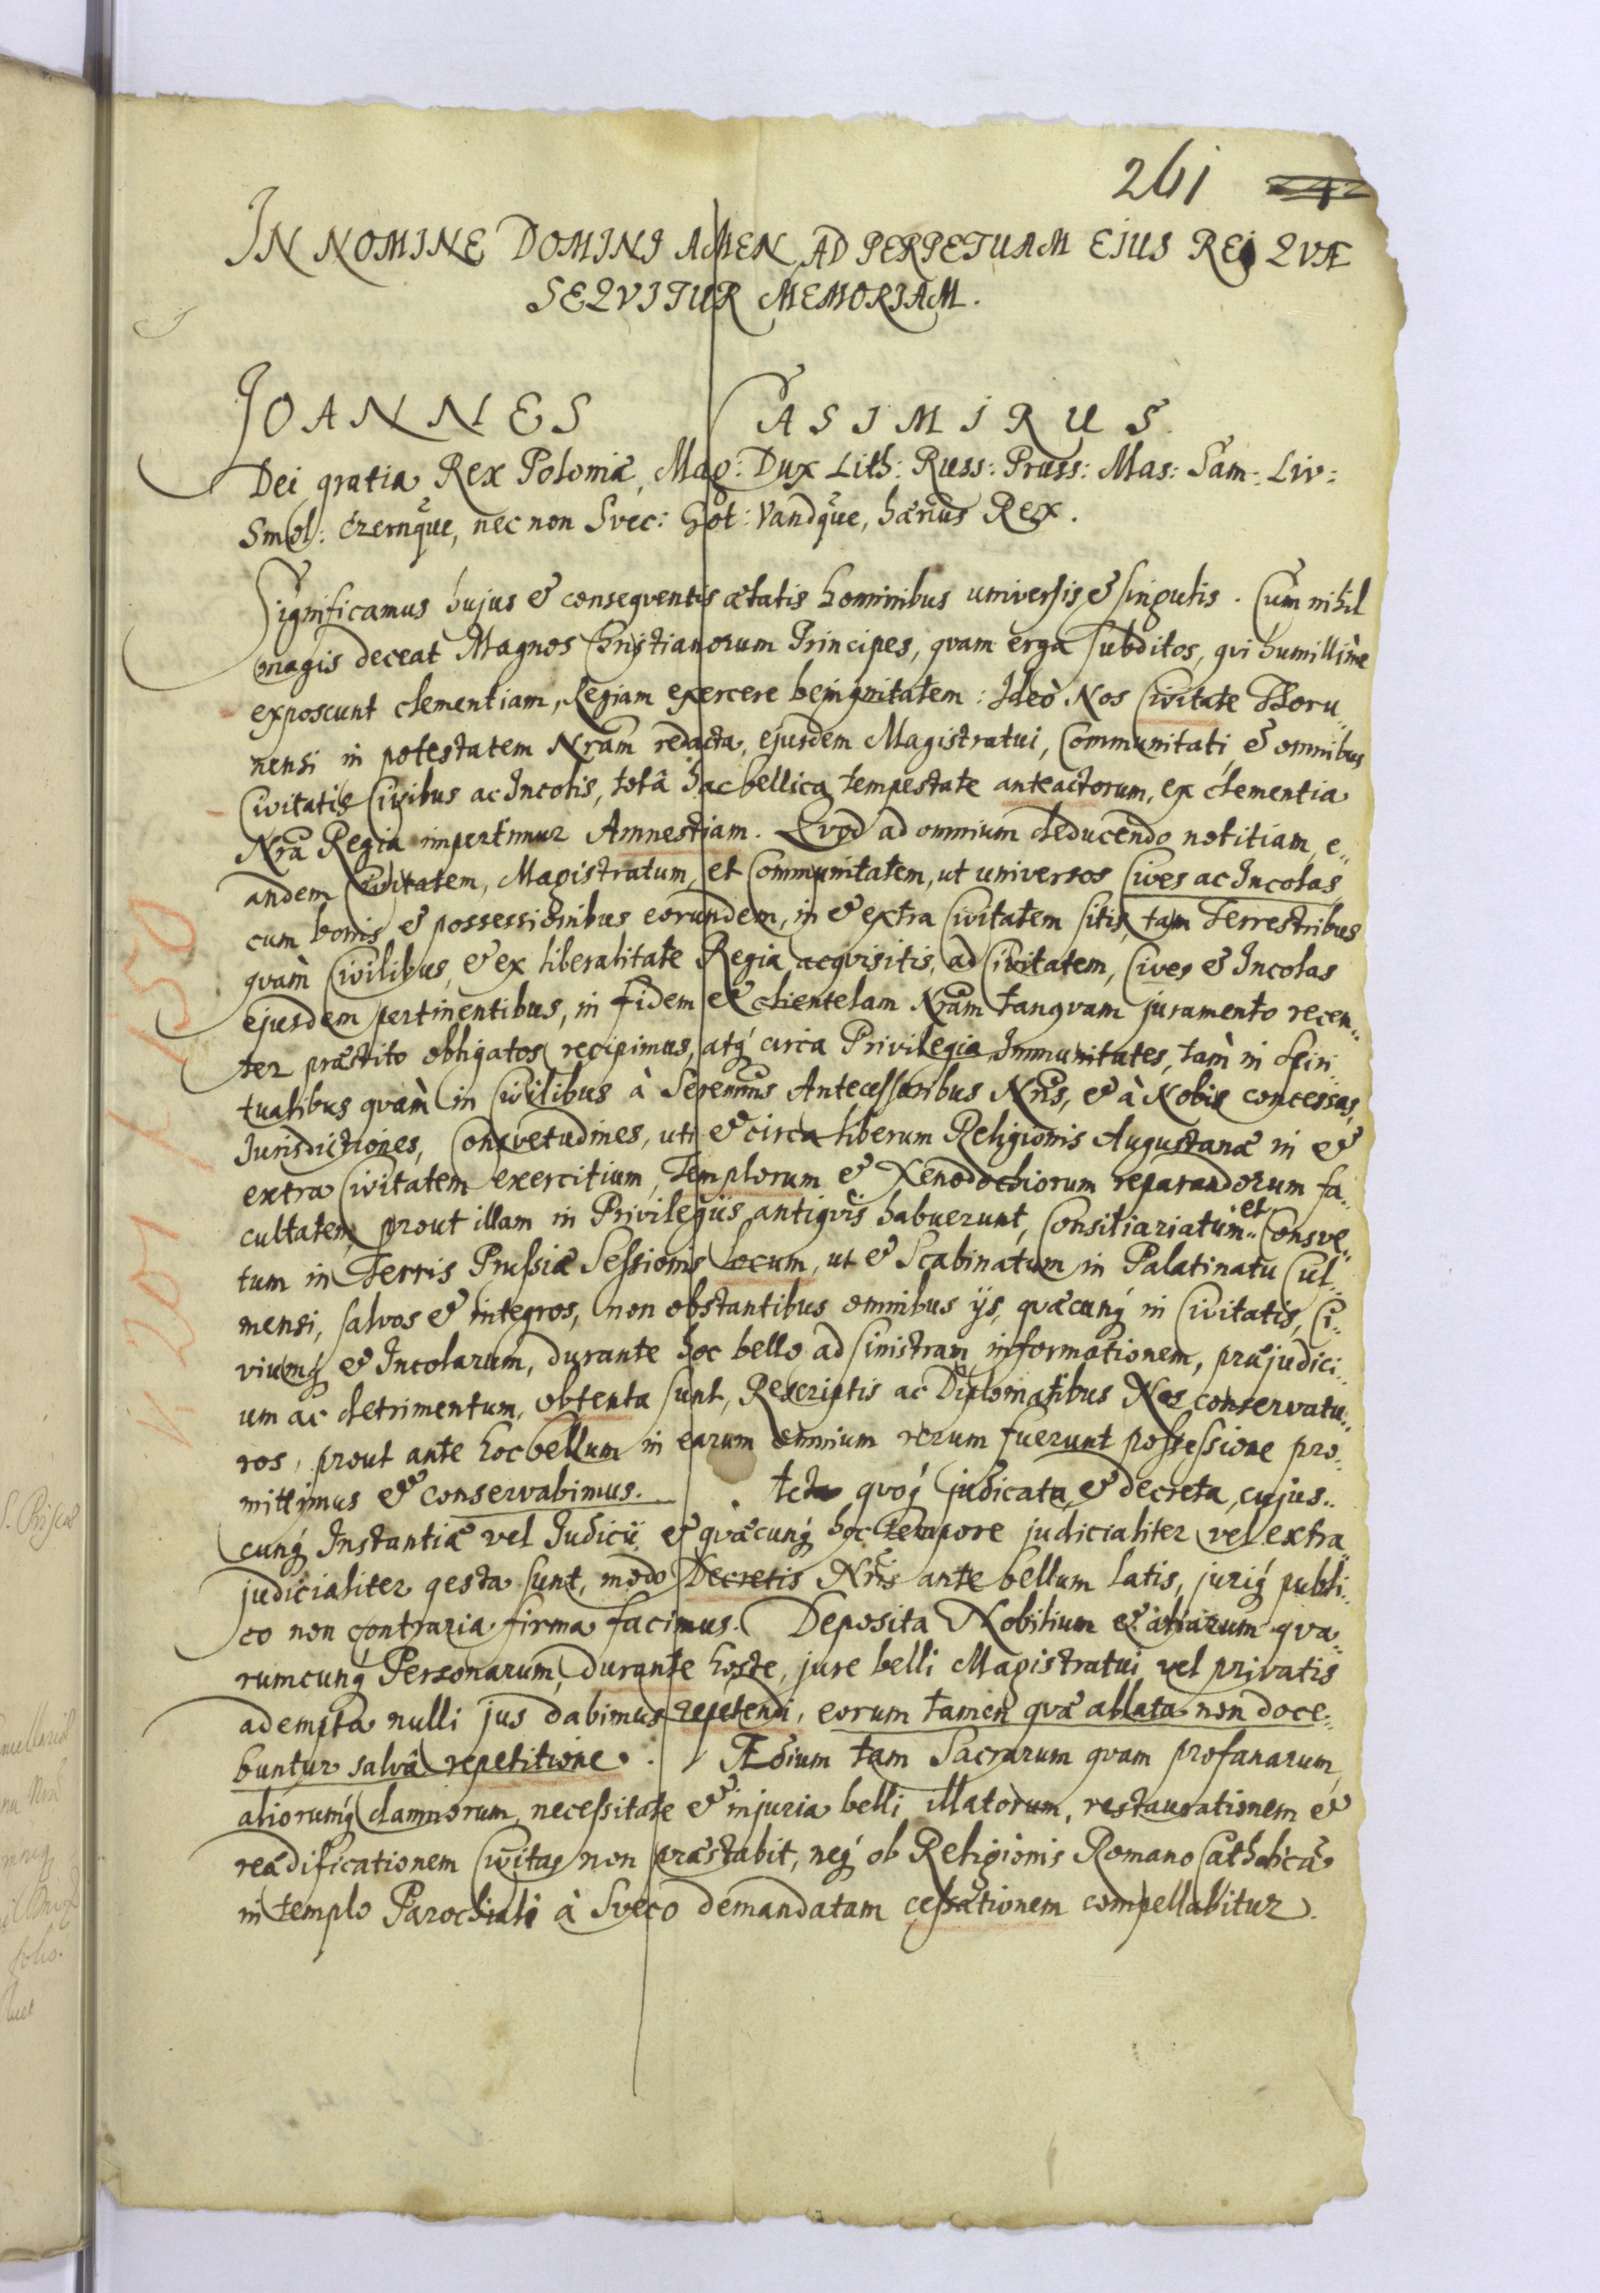 261
IN NOMINE DOMINI AMEN AD PERPETUAM EJUS REI QVÆ
SEQVITUR MEMORIAM.
JOANNES CASIMIRUS.
Dei gratia Rex Poloniæ, Mag: Dux Lith: Russ: Pruss: Mas: Sam: Liv:
Smol: Czernqve, nec non Svec: Got: Vandqve, hærius Rex.
Significamus hujus & conseqventis ætatis hominibus universis & singulis. Cum nihil
magis deceat Magnos Christianorum Principes, qvam erga subditos, qvi humillime
exposcunt clementiam, Regiam exercere beingnitatem: Ideò Nos Civitate Thoru..
nensi in potestatem Nram redacta, ejusdem Magistratui, Communitati, & omnibus
Civitatis Civibus ac Incolis, totâ hac bellica tempestate anteactorum, ex clementia
Nrâ Regia impertimur Amnestiam. Qvod ad omnium deducendo notitiam, e..
andem Civitatem, Magistratum, et Communitatem, ut universos Cives ac Incolas
cum bonis & possessionibus eorundem, in & extra Civitatem sitis, tam Terrestribus
qvàm Civilibus, & ex liberalitate Regia acqvisitis, ad Civitatem, Cives & Incolas
ejusdem pertinentibus, in fidem & clientelam Nram tanqvam juramento recen..
ter præstito obligatos recipimus, atq circa Privilegia Immunitates, tàm in Spiri..
tualibus qvàm in Civilibus à Serenmis Antecessoribus Nris, & à Nobis concessas,
Jurisdictiones, Consvetudines, uti & circa liberum Religionis Augustanæ in &
extra Civitatem exercitium, Templorum & Xenodochiorum reparandorum fa..
cultatem, prout illam in Privilegiis antiqvis habuerunt, Consiliariatum et Consve..
tum in Terris Prussiæ Sessionis locum, ut & Scabinatum in Palatinatu Cul..
mensi, salvos & integros, non obstantibus omnibus ijs, qvæcunq in Civitatis, Ci..
viumq & Incolarum, durante hoc bello ad sinistram informationem, præjudici..
um ac detrimentum, obtenta sunt, Rescriptis ac Diplomatibus Nos conservatu..
ros, prout ante hoc bellum in earum omnium rerum fuerunt possessione pro..
mittimus & conservabimus. Acta qvoq judicata & decreta, cujus..
cunq Instantiæ vel Judicij, & qvæcunq hoc tempore judicialiter vel extra
judicialiter gesta sunt, modo Decretis Nris ante bellum latis, juriq publi..
co non contraria firma facimus. Deposita Nobilium & aliarum qva..
rumcunq Personarum, durante hoste, jure belli Magistratui vel privatis
adempta nulli jus dabimus repetendi, eorum tamen qvæ ablata non doce..
buntur salvâ repetitione. Ædium tam Sacrarum qvam profanarum,
aliorumq damnorum, necessitate & injuria belli illatorum, restaurationem &
reædificationem Civitas non præstabit, neq ob Religionis Romano Catholicæ
in templo Parochiali à Sveco demandatam cessationem compellabitur.